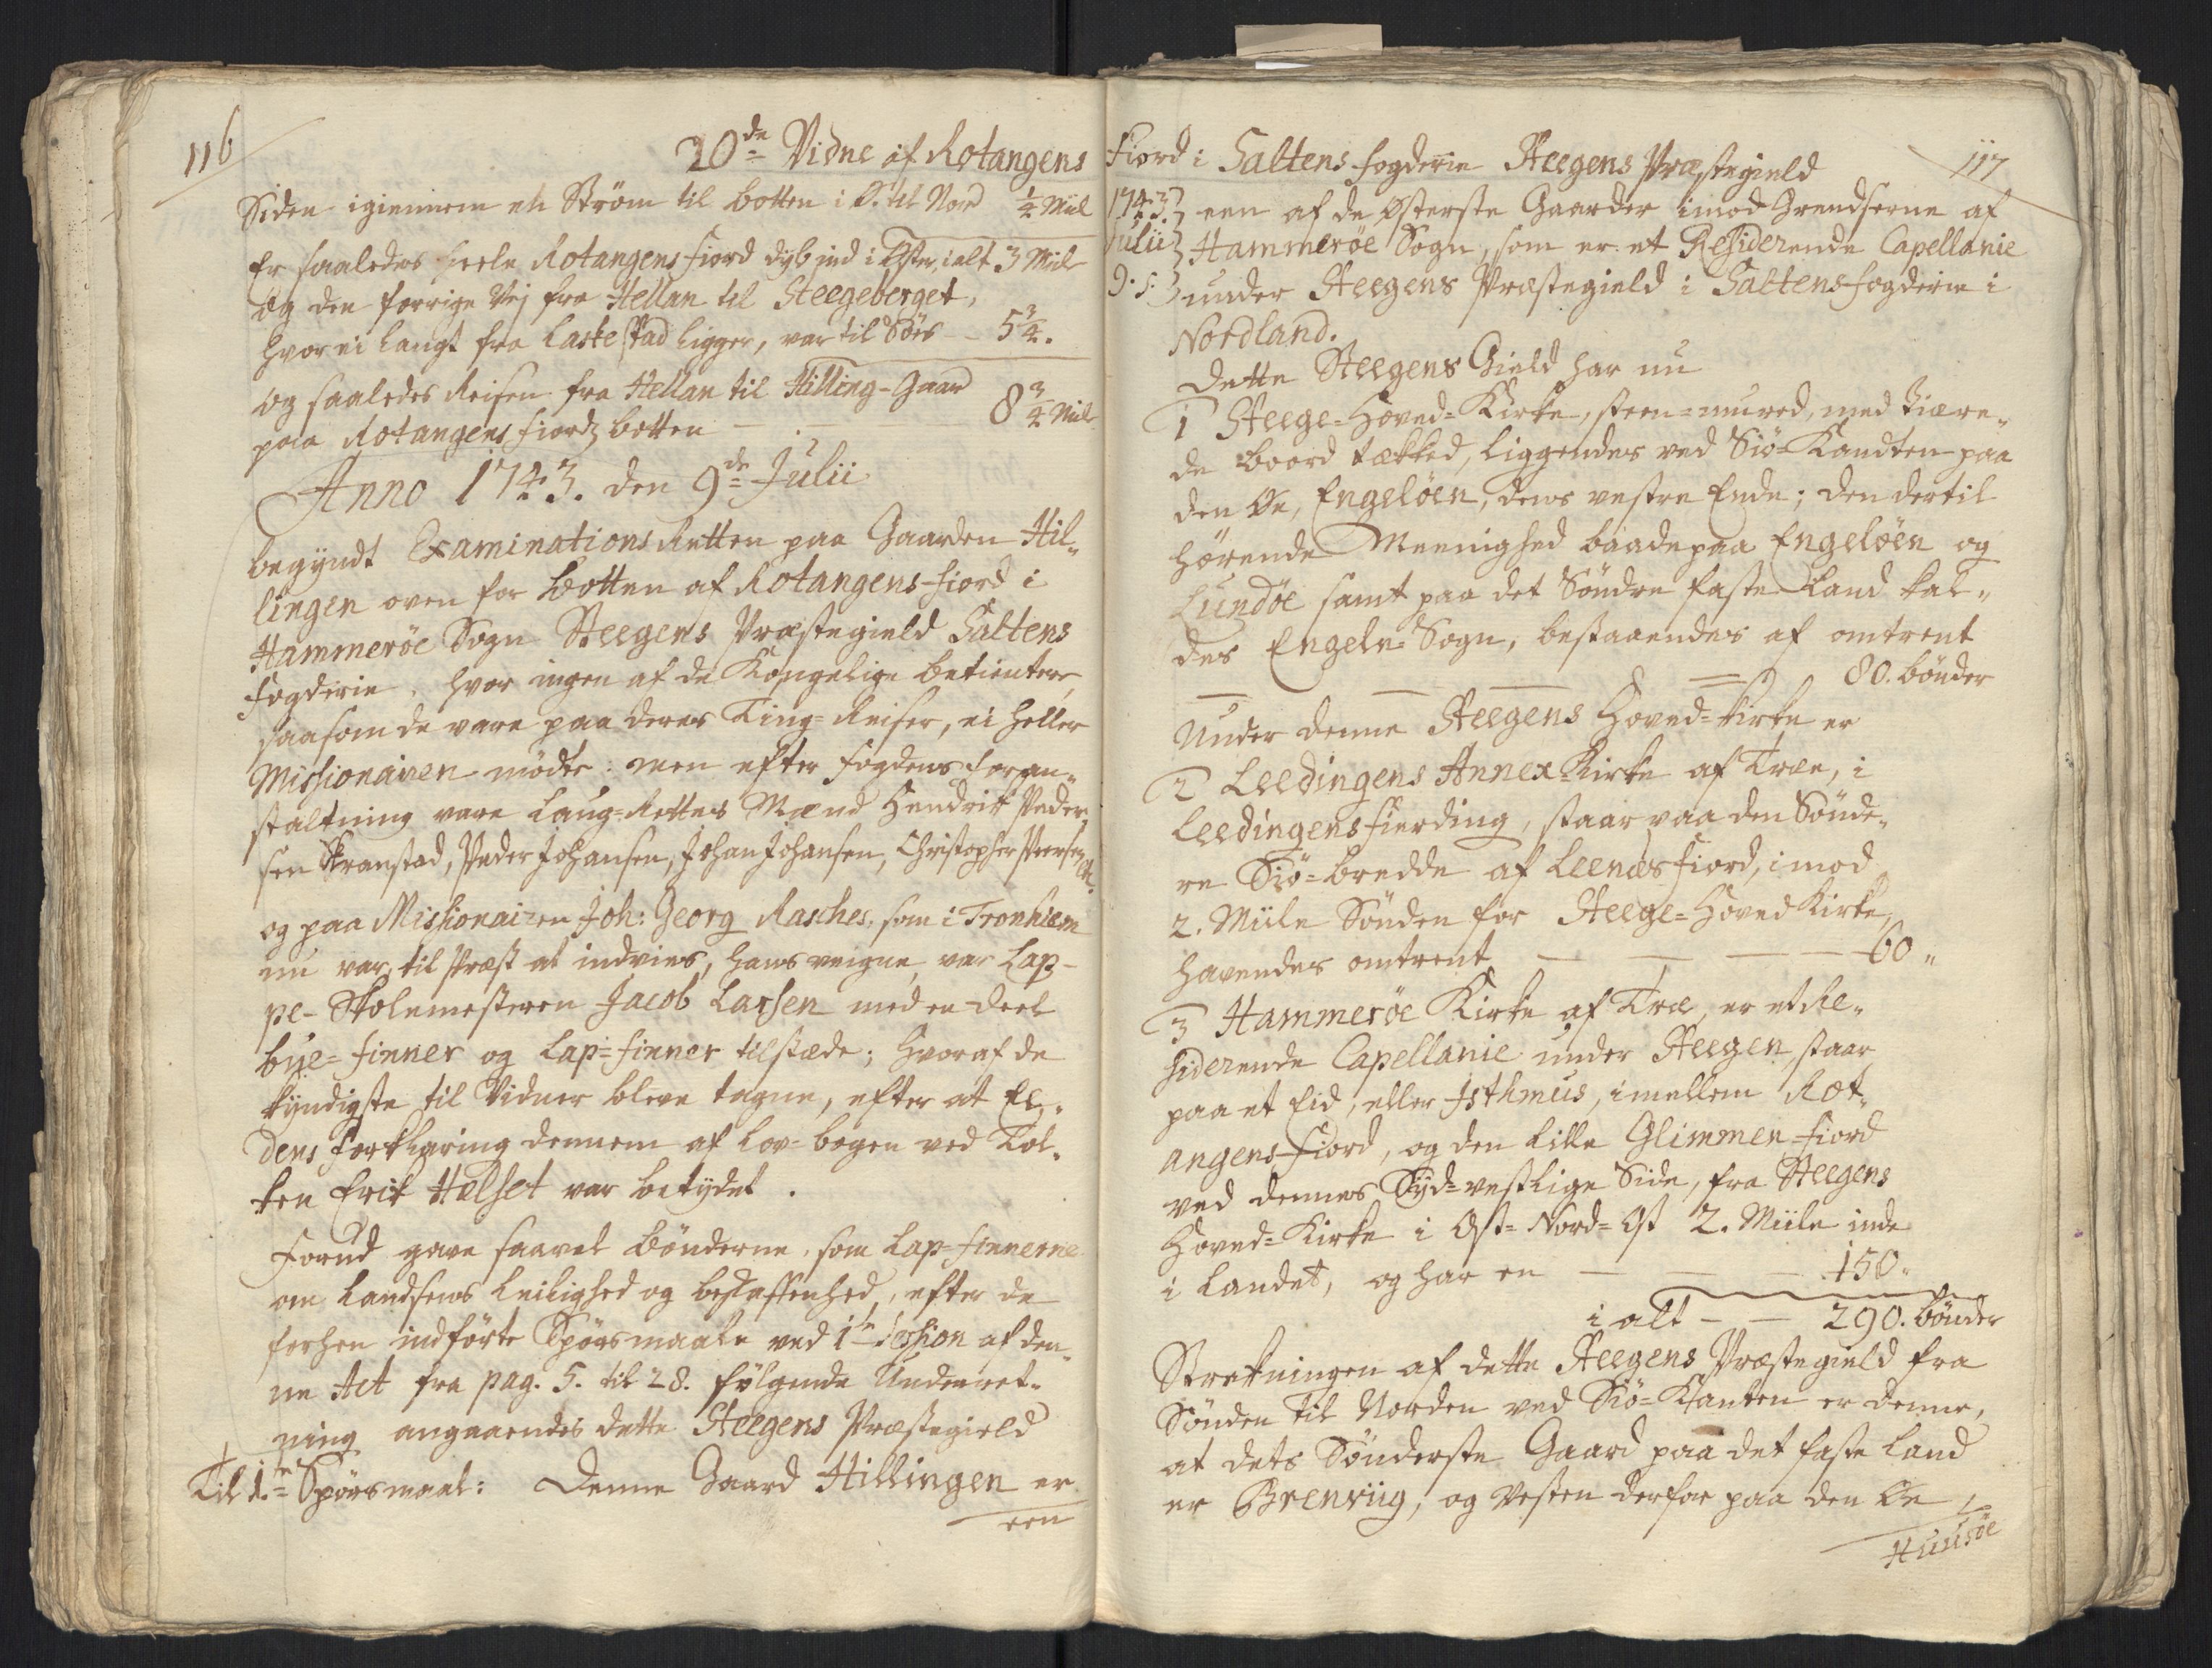 116
20de Vidne af Rotangens
Siden igiennem en Strøm til botten i O. til Nord ½ Miil
Er saaledes heele Rotangens fiord dyb ind i Øster, ialt 3 Mile
og den forrige Vej fra Hellan til Steegeberget,
hvor ei langt fra Laskestad ligger, var til Søes - - 5¾.
og saaledes Reisen fra Hellan til Hilling-Gaar
paa Rotangens fiords botten - . 8¾ Mile
Anno 1743. den 9de Julii
begyndt Examinations Retten paa Gaarden Hil„
lingen oven for botten af Rotangens-fiord i
Hammerøe Sogn Steegens Præstegield Saltens
fogderie, hvor ingen af de Kongelige betientere,
saasom de vare paa deres Ting-Reiser, ei heller
Missionairen mødte: men efter fogdens foran„
staltning vare Laug-Rettes Mænd Hendrik Peder„
sen Kranstad, Peder Johansen, Johan Johansen, Christopher Peersen
og paa Missionairen Joh: Georg Rasches, som i Tronhiem
nu var, til Præst at indvies, hans veigne, var Lap-
pe-Skolemesteren Jacob Larsen med en deel
bye-finner og Lap-finner tilstæde; hvoraf de
kyndigste til Vidner bleve tagne, efter at Ee„
dens forklaring dennem af Lov-bogen ved Tol„
ken Erik Helset var betydet.
Forud gave saavel bønderne, som Lap-finnerne
om Landsens Leilighed og beskaffenhed, efter de
forhen indførte Spørsmaale ved 1te Session af den„
ne Act fra pag. 5. til 28. følgende Underret„
ning angaaendes dette Steegens Præstegield
Til 1.te Spørsmaal: Denne Gaard Hillingen er
een
fiord i Saltens fogderie Steegens Præstegield
117
1743.
Julii
9. s:
een af de Østerste Gaarder imod Grendserne af
Hammerøe Sogn, som er et Residerende Capellanie
under Steegens Præstegield i Saltens-fogderie i
Nordland.
Dette Steegens Gield har nu
1 Steege-Hoved-Kirke, steen-mured, med tiære„
de boord tækked, liggendes ved Siø-Kandten paa
den Øe, Engeløen, dens vestre Ende; den dertil
hørende Meenighed baade paa Engeløen og
Lundøe samt paa det Søndre faste Land kal„
des Engeln-Sogn, bestaaendes af omtrent
80. bønder
Under denne Steegens Hoved-kirke er
2 Leedingens Annex-Kirke af Træe, i
Leedingens fierding, staar paa den Sønd„
re Siø-bredde af Leenæs fiord, imod
2. Miile Sønden for Steege-Hoved Kirke,
havendes omtrent — — — — 60 „
3 Hammerøe Kirke af Træ, er et Re„
siderende Capellanie under Steegen, staar
paa et Eid, eller Isthmus, imellem Rot„
angens-fiord, og den lille Glimmen-fiord
ved dennes Syd-vestlige Side, fra Steegens
Hoved-Kirke i Ost-Nord-Ost 2. Miile inde
i Landet, og har en — — — 150.
i alt - — 290. bønder
Strekningen af dette Steegens Præstegield fra
Sønden til Norden ved Siø-Kanten er denne,
at dets Sønderste Gaard paa det faste Land
er Brenviig, og Vesten derfor paa den Øe,
Huusøe